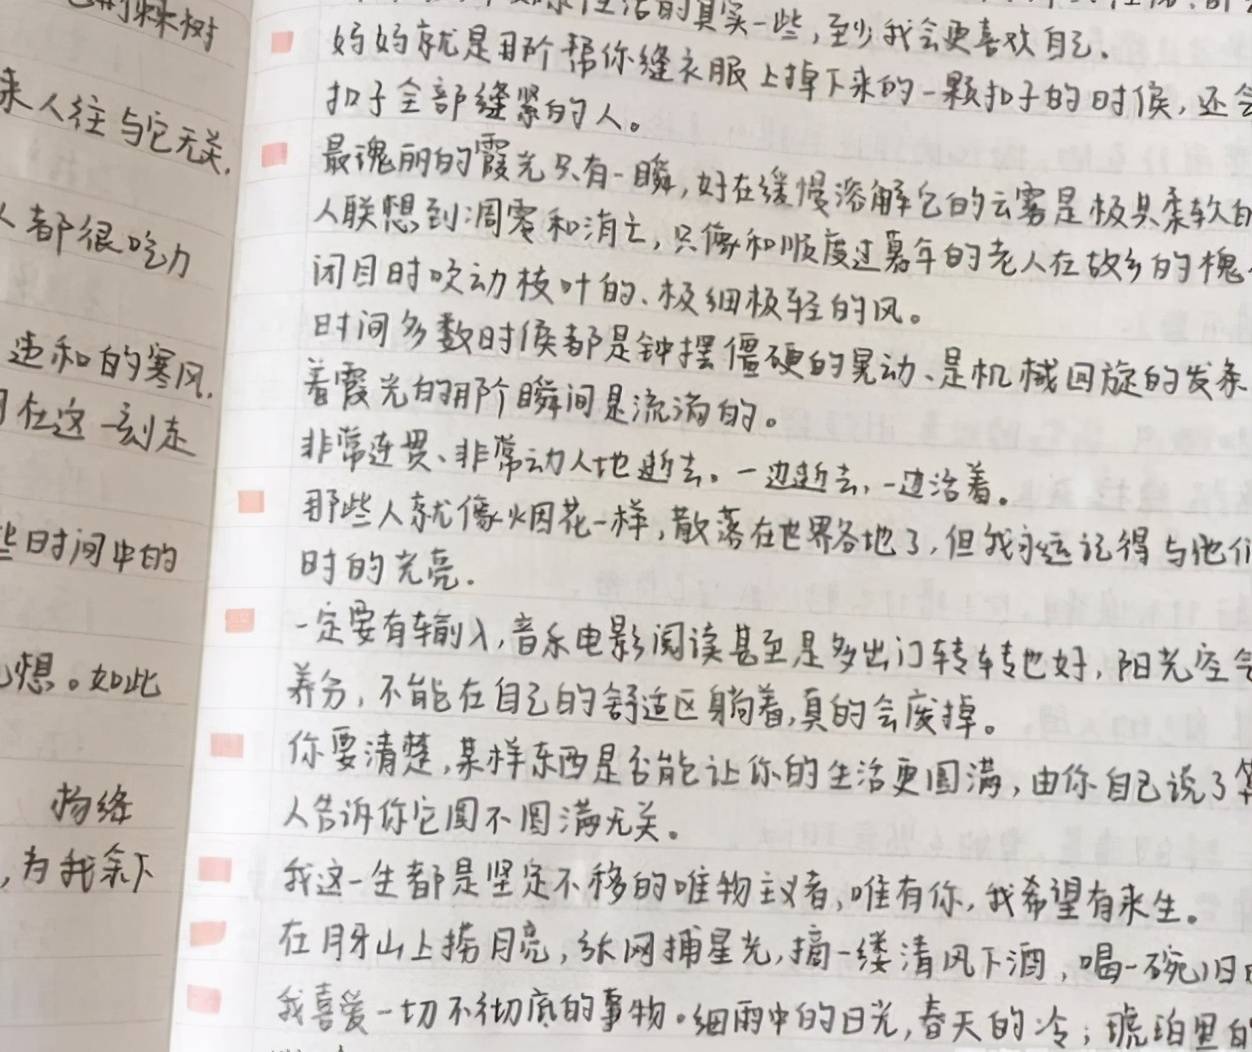 树
来人往与它无关.
人都很吃力
违和的寒风.
在这一刻走
些日时间中的
想。如此
杨绛
,为我余下
活的真实一些,至少我会更喜欢自己.
妈妈就是那个帮你缝衣服上掉下来的一颗扣子的时候,还会
扣子全部缝紧的人。
最瑰丽的霞光只有一瞬,好在缓慢溶解它的云雾是极其柔软的
人联想到凋零和消亡,只像和顺度过暮年的老人在故乡的槐
闭目时吹动枝叶的、极细极轻的风。
时间多数时候都是钟摆僵硬的晃动、是机械回旋的发条
着霞光的那个瞬间是流淌的。
非常连贯、非常动人地逝去。一边逝去,一边活着。
那些人就像烟花一样,散落在世界各地了,但我永远记得与他们
时的光亮.
一定要有输入,音乐电影阅读甚至是多出门转转也好,阳光空气
养分,不能在自己的舒适区躺着,真的会废掉。
你要清楚,某样东西是否能让你的生活更圆满,由你自己说了算
人告诉你它圆不圆满无关。
我这一生都是坚定不移的唯物主义者,唯有你,我希望有来生。
在月牙山上捞月亮,张网捕星光,摘一缕清风下酒,喝一碗旧
我喜爱一切不彻底的事物。细雨中的日光,春天的冷;琥珀里的